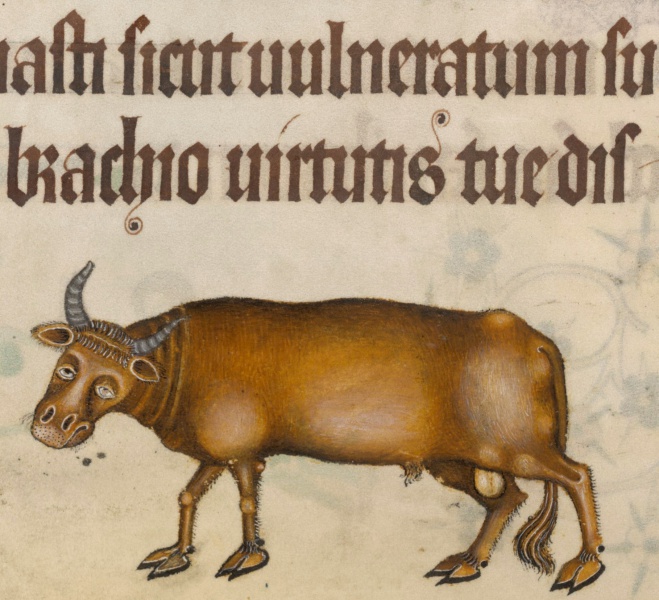 uasti sicut uulneratum su
brachio uirtutis tue dis